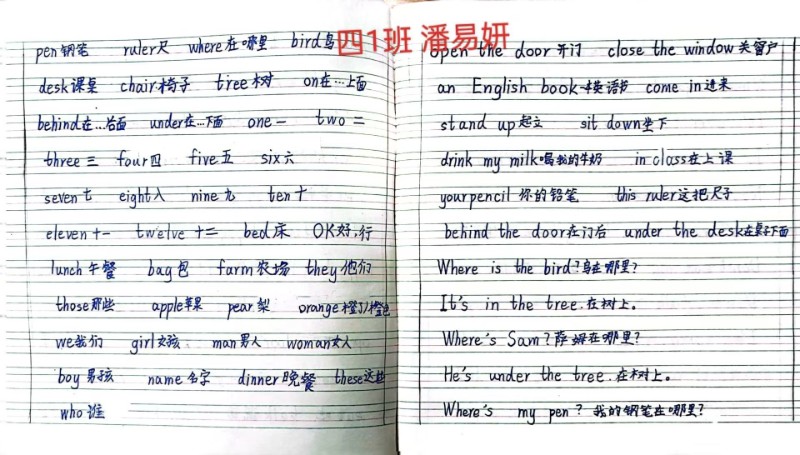 四1班 潘易妍
pen 钢笔 ruler 尺 where 在哪里 bird 鸟
desk 课桌 chair 椅子 tree 树 on 在…上面
behind 在…后面 under 在…下面 one 一 two 二
three 三 four 四 five 五 six 六
seven 七 eight 八 nine 九 ten 十
eleven 十一 twelve 十二 bed 床 OK 好,行
lunch 午餐 bag 包 farm 农场 they 他们
those 那些 apple 苹果 pear 梨 orange 橙子/橙色
we 我们 girl 女孩 man 男人 woman 女人
boy 男孩 name 名字 dinner 晚餐 these 这些
who 谁
open the door 开门 close the window 关窗户
an English book 一本英语书 come in 进来
stand up 起立 sit down 坐下
drink my milk 喝我的牛奶 in class 在上课
your pencil 你的铅笔 this ruler 这把尺子
behind the door 在门后 under the desk 在桌子下面
Where is the bird? 鸟在哪里?
It's in the tree. 在树上。
Where's Sam? 萨姆在哪里?
He's under the tree. 在树上。
Where's my pen? 我的钢笔在哪里?